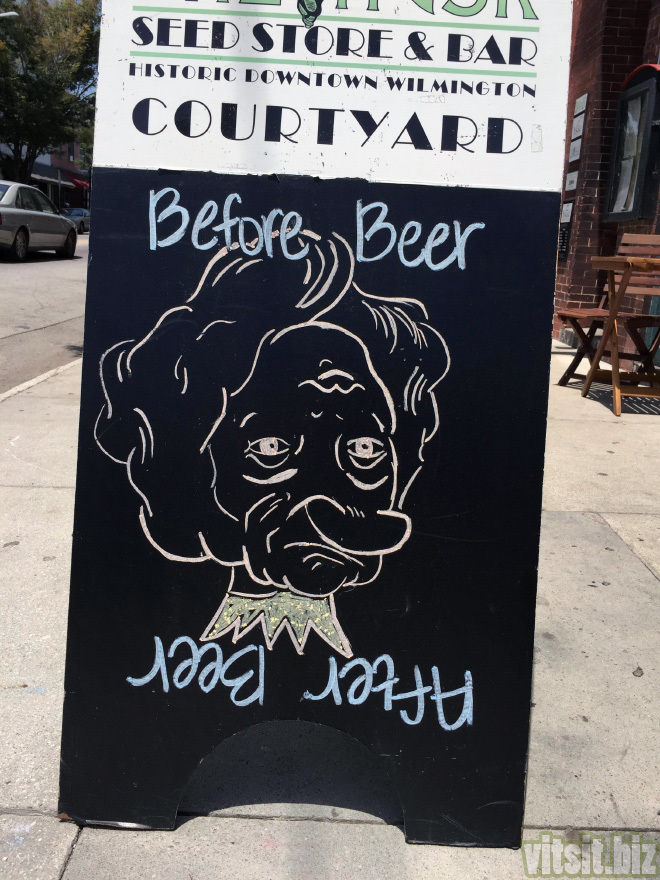 SEED STORE & BAR
HISTORIC DOWNTOWN WILMINGTON
COURTYARD
Before Beer
After Beer
vitsit.biz